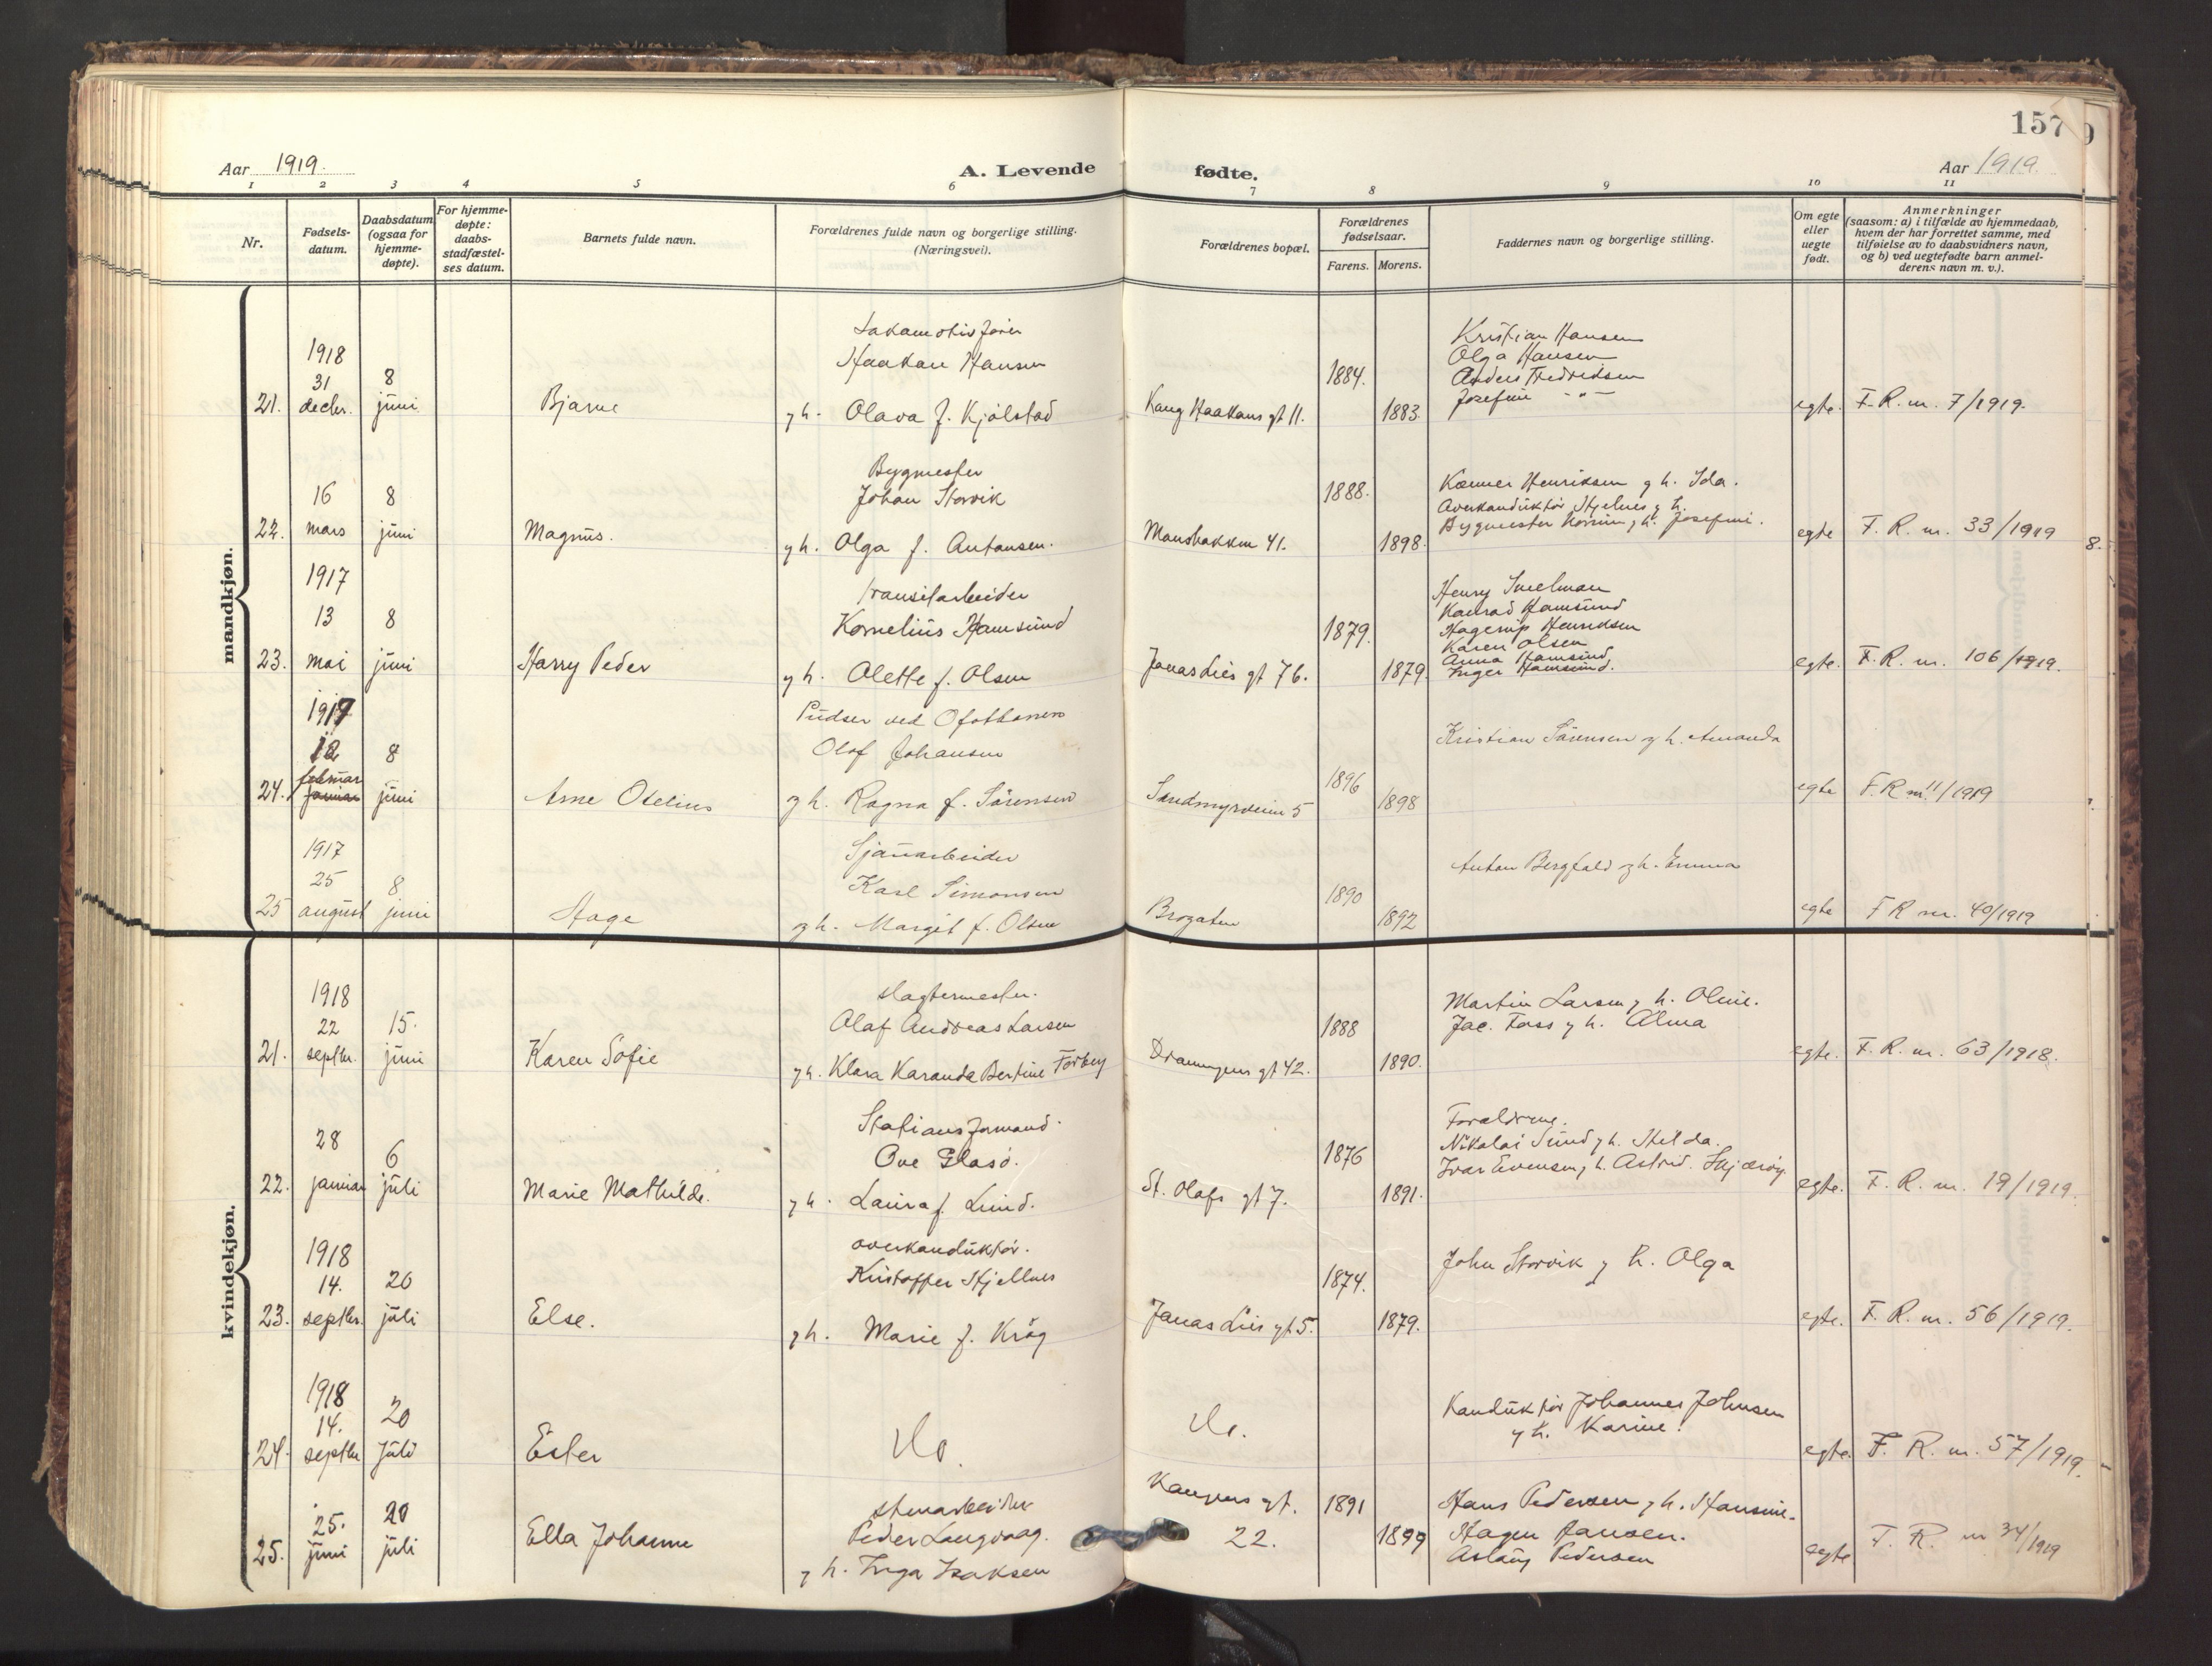 157
Aar 1919.
A. Levende
fødte.
Aar 1919.
1 2 3 4 5 6 7 8 9 10 11
Nr.
Fødsels-
datum.
Daabsdatum
(ogsaa for
hjemme-
døpte).
For hjemme-
døpte:
daabs-
stadfæstel-
ses datum.
Barnets fulde navn.
Forældrenes fulde navn og borgerlige stilling.
(Næringsvei).
Forældrenes bopæl.
Forældrenes
fødselsaar.
Farens. Morens.
Faddernes navn og borgerlige stilling.
Om egte
eller
uegte
født.
Anmerkninger
(saasom: a) i tilfælde av hjemmedaab,
hvem der har forrettet samme, med
tilføielse av to daabsvidners navn,
og b) ved uegtefødte barn anmel-
derens navn m. v.).
mandkjøn.
21.
1918
31
decbr.
8
juni
Bjarne
Lokomotivfører
Haakon Hansen
g h. Olava f. Kjølstad
Kong Haakons gt 11.
1884.
1883.
Kristian Hansen
Olga Hansen
Anders Fredriksen
Josefine -"-
egte.
F. R. nr. 7/1919.
22.
16
mars
8
juni
Magnus.
Bygmester
Johan Storvik
g h. Olga f. Antonsen.
41.
1888.
1898.
Henriksen g h. Ida.
Overkonduktør Hjelnes g h.
Bygmester g h. Josefine.
egte
F. R. nr. 33/1919
8.
23.
1917
13
mai
8
juni
Harry Peder
Transitarbeider
Kornelius Hamsund
g h. Olette f. Olsen
Jonas Lies gt 76.
1879.
1879
Henry
Konrad Hamsund
Hagerup Henriksen
Karen Olsen
Anna Hamsund
Inger Hamsund.
egte.
F. R. nr. 106/1919.
24.
1919
12
februar
januar
8
juni
Arne Otelius
Pudser ved Ofotbanen
Olof Johansen
g h. Ragna f. Sørensen
Sandmyrveien 5
1896
1898
Kristian Sørensen g h. Amanda
egte
F. R nr. 11/1919
25
1917
25
august
8
juni
Aage
Sjauarbeider
Karl Simonsen
g h. Margit f. Olsen
Brogaten
1890
1892
Anton Bergfald g h. Emma
egte
F R nr. 40/1919
kvindekjøn.
21.
1918
22
septbr.
15.
juni
Karen Sofie
Slagtermester.
Olaf Andreas Larsen
g h. Klara Karanda Bertine Forberg
Dronningens gt 42.
1888
1890.
Martin Larsen g h. Oline.
Jac. Foss g h. Alma
egte.
F. R. nr. 63/1918.
22.
28
januar
6
juli
Marie Mathilde.
Stationsformand.
Ove Glasø.
g h. Laura f. Lund.
St. Olafs gt 7.
1876
1891.
Forældrene.
Nikolai Sund g h. Hilda.
Ivar Evensen g h. Astrid.
egte.
F. R. nr. 19/1919.
23.
1918
14.
septbr.
20
juli
Else.
overkonduktør.
Kristoffer Hjellnes
g h. Marie f. Krog
Jonas Lies gt 5.
1874.
1879.
John Storvik g h. Olga
egte.
F. R. nr. 56/1919.
24.
1918
14.
septbr
20
Juli
Ester
Do.
Do.
Konduktør Johannes Johnsen
g h. Karine.
egte.
F. R. nr. 57/1919.
25.
25.
juni
20
juli
Ella Johanne
stenarbeider
Peder Langvaag.
g h. Inga Isaksen
Kongens gt.
22.
1891
1899
Hans Pedersen g h. Hansine.
Hagen Hansen.
Aslaug Pedersen
egte
F. R. nr 34/1919